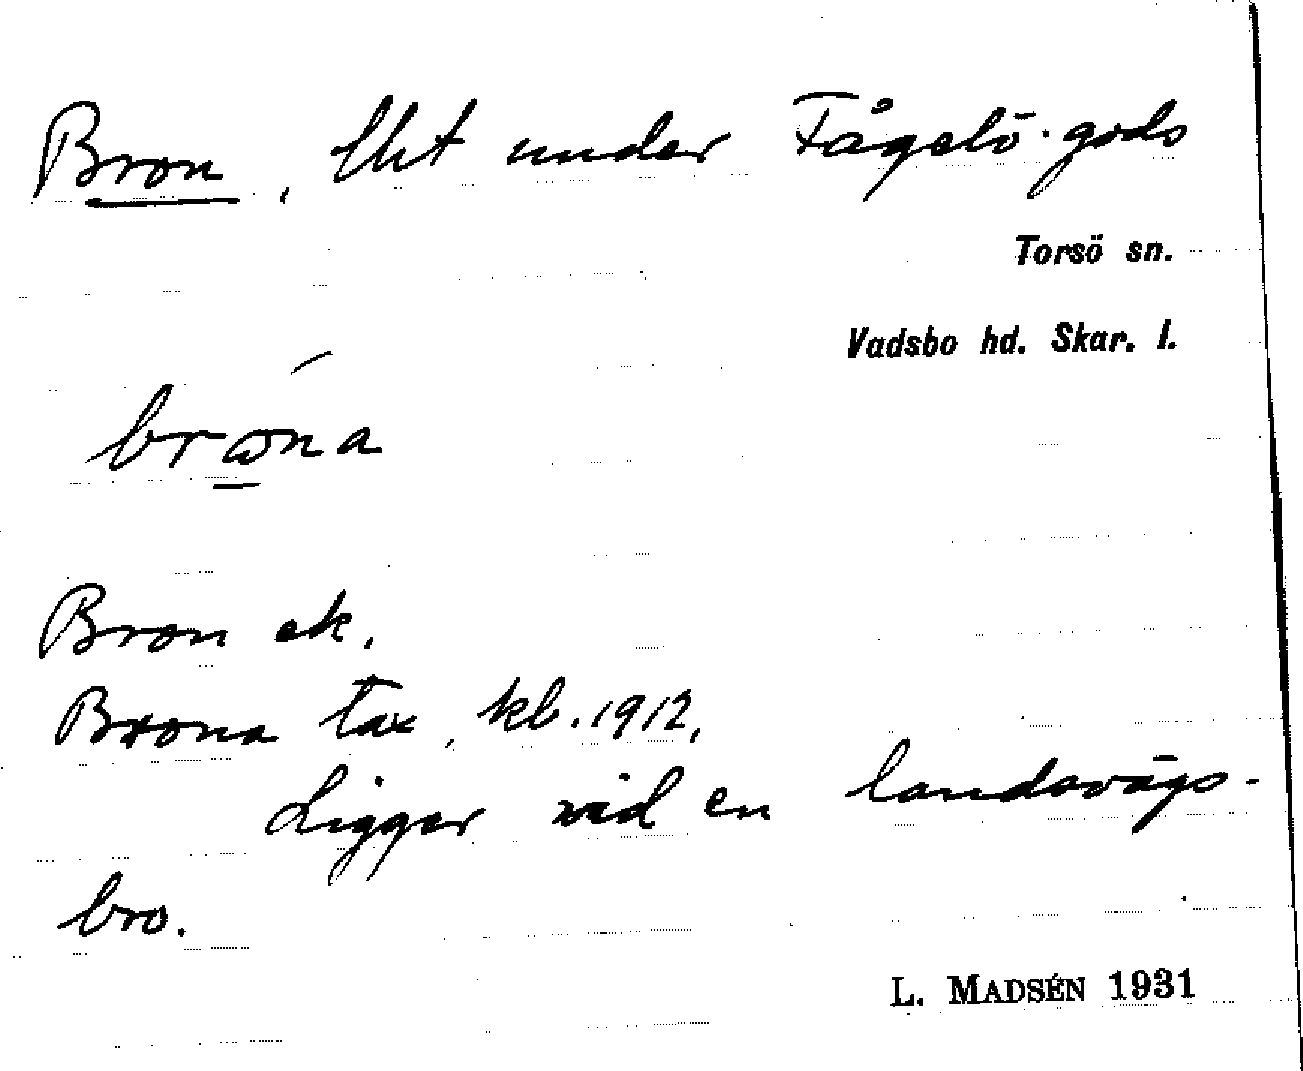 Bron, lht under Fågelö-gods
Torsö sn.
Vadsbo hd. Skar. l.
Bron ek.
Brona tax, kb. 1912,
Ligger vid en landsvägs-
bro.
L. MADSÉN 1931